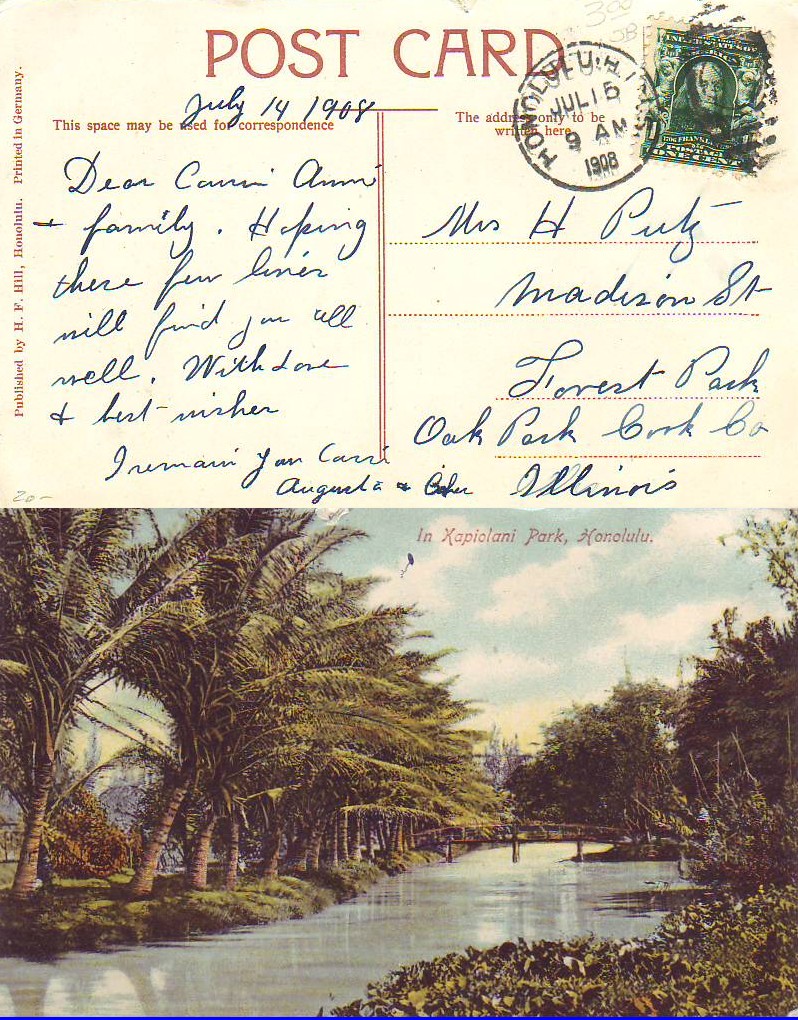 3.00
SB
POST CARD
HONOLULU, H.
JUL 15
9 AM
1908
POSTAGE
ONE CENT
July 14 1908
This space may be used for correspondence
The address only to be
written here
Published by H. F. Hill, Honolulu. Printed in Germany.
Dear
+ family. Hoping
these few lines
will find you all
well. With Love
& best wishes
I remain
Augusta &
Mrs H Putz
Madison St
Forest Park
Oak Park Cook Co
Illinois
20-
In Kapiolani Park, Honolulu.